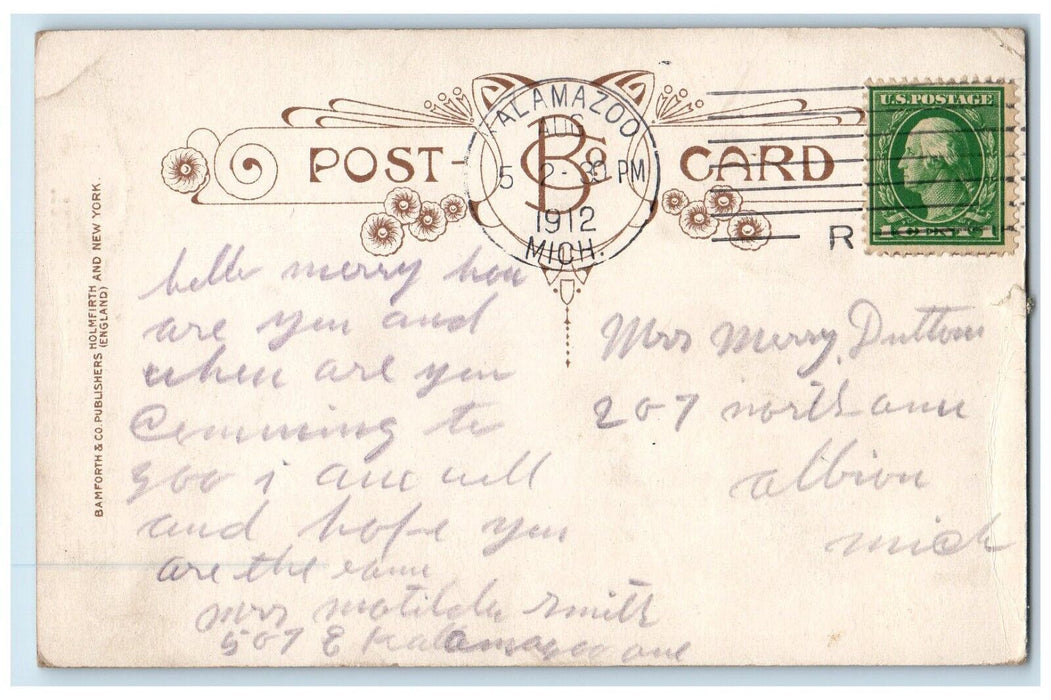 POST- CARD
BCo
KALAMAZOO
AUG
5 2-30 PM
1912
MICH.
R
U.S. POSTAGE
1 CENT 1
BAMFORTH & CO. PUBLISHERS HOLMFIRTH AND NEW YORK.
(ENGLAND)
hello merry how
are you and
when are you
Comming to
goo i am well
and hope you
are the same
mrs matilda Smith
507 E Kalamazoo ave
Mrs Merry Dutton
207 north ann
albion
mich